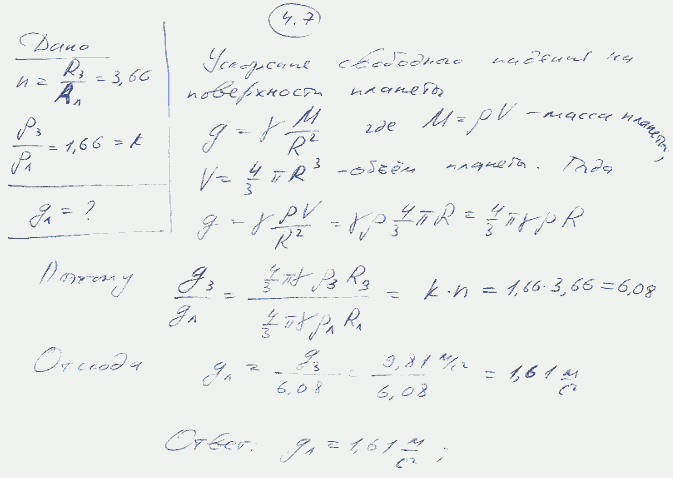 4.7
Дано
n = R_З / R_Л = 3,66
ρ_З / ρ_Л = 1,66 = k
g_Л = ?
Ускорение свободного падения на
поверхности планеты
g = γ M / R² где M = ρV - масса планеты,
V = 4/3 πR³ - объём планеты. Тогда
g = γ ρV / R² = γρ 4/3 πR = 4/3 πγρR
Поэтому g_З / g_Л = 4/3 πγρ_З R_З / 4/3 πγρ_Л R_Л = k·n = 1,66·3,66 = 6,08
Отсюда g_Л = g_З / 6,08 = 9,81 м/с² / 6,08 = 1,61 м/с²
Ответ: g_Л = 1,61 м/с² ;